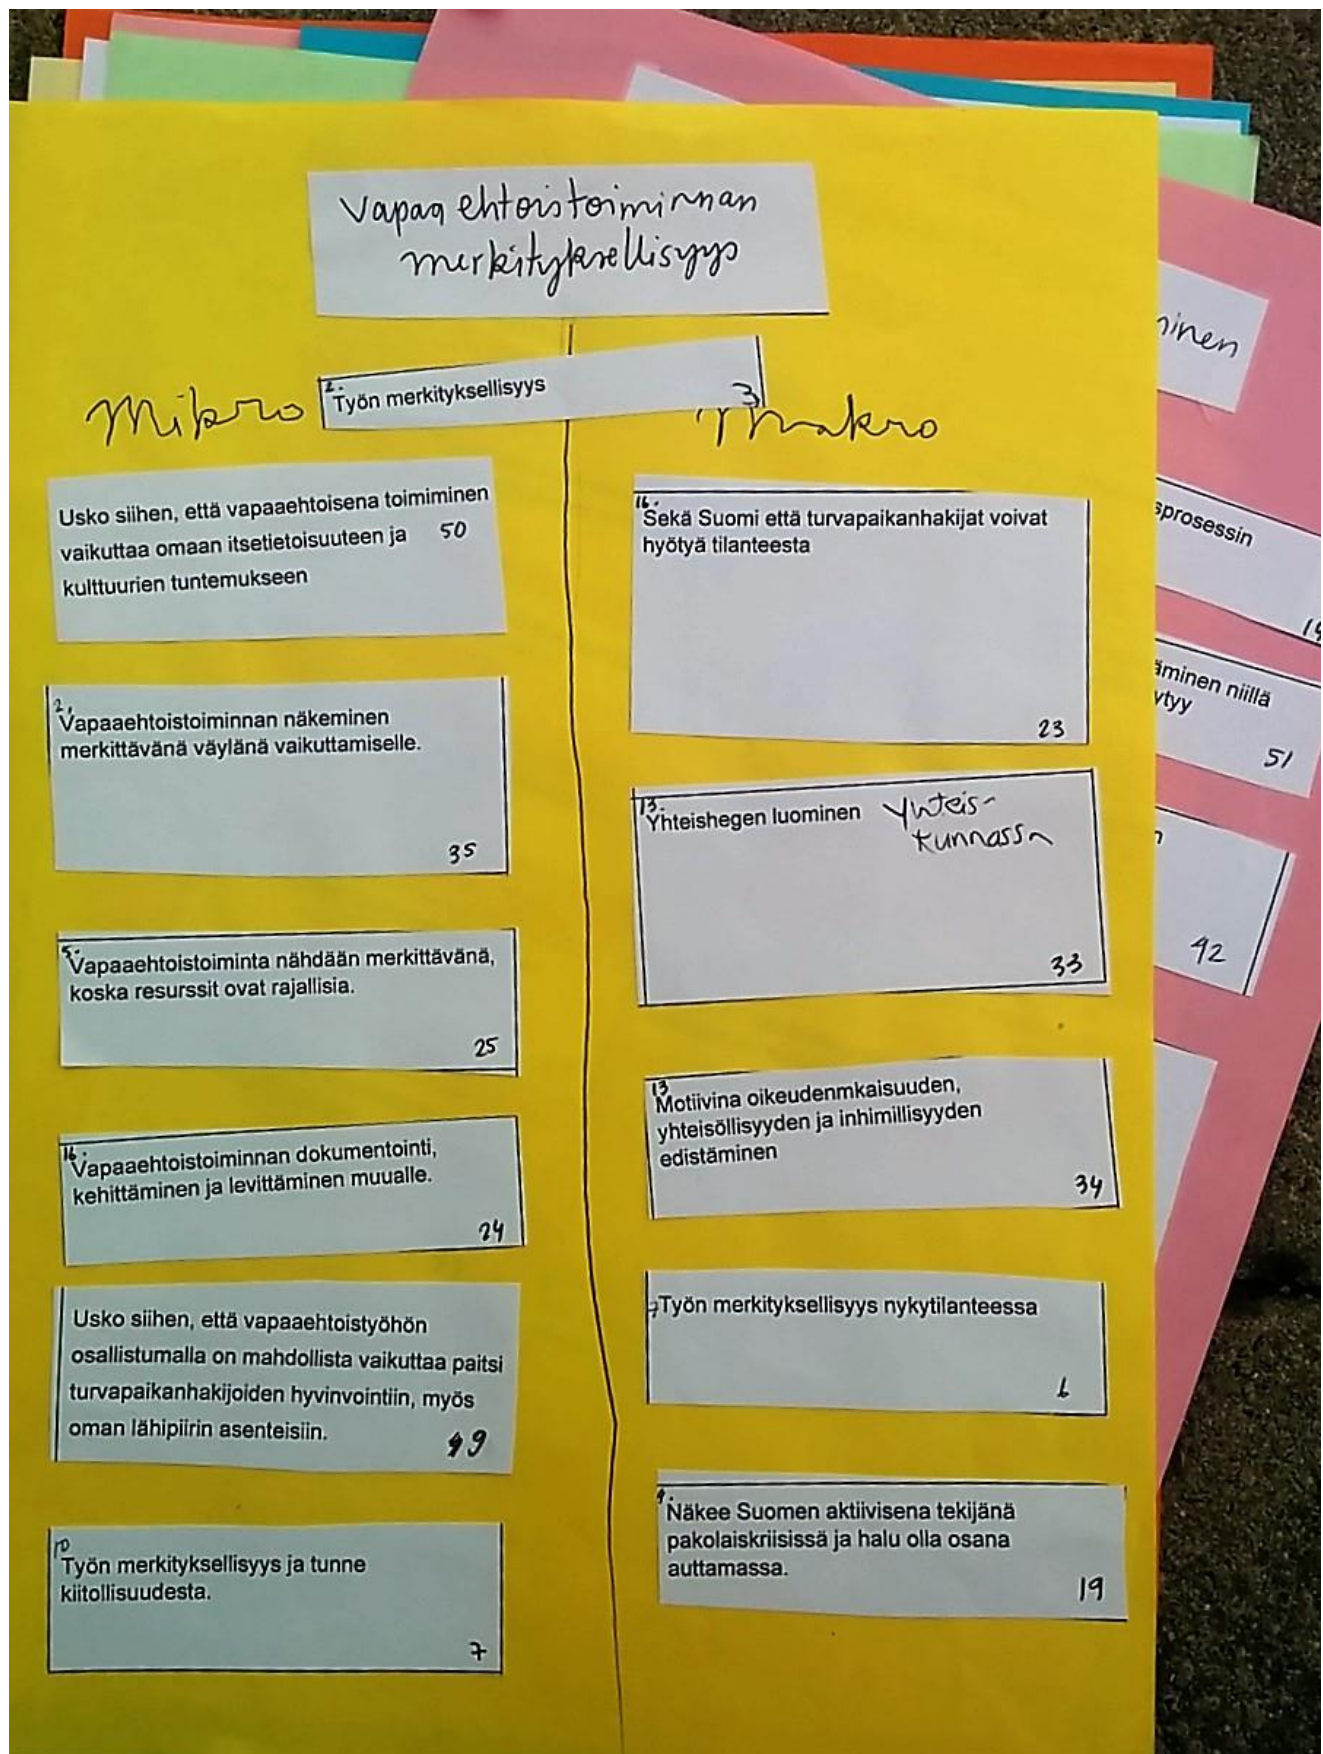 Vapaaehtoistoiminnan
merkityksellisyys
2.
Työn merkityksellisyys
3
Mikro
Makro
Usko siihen, että vapaaehtoisena toimiminen
vaikuttaa omaan itsetietoisuuteen ja 50
kulttuurien tuntemukseen
2.
Vapaaehtoistoiminnan näkeminen
merkittävänä väylänä vaikuttamiselle.
35
5.
Vapaaehtoistoiminta nähdään merkittävänä,
koska resurssit ovat rajallisia.
25
16.
Vapaaehtoistoiminnan dokumentointi,
kehittäminen ja levittäminen muualle.
24
Usko siihen, että vapaaehtoistyöhön
osallistumalla on mahdollista vaikuttaa paitsi
turvapaikanhakijoiden hyvinvointiin, myös
oman lähipiirin asenteisiin.
49
10
Työn merkityksellisyys ja tunne
kiitollisuudesta.
7
16.
Sekä Suomi että turvapaikanhakijat voivat
hyötyä tilanteesta
23
13.
Yhteishegen luominen Yhteis-
kunnassa
33
13
Motiivina oikeudenmkaisuuden,
yhteisöllisyyden ja inhimillisyyden
edistäminen
34
7 Työn merkityksellisyys nykytilanteessa
6
9.
Näkee Suomen aktiivisena tekijänä
pakolaiskriisissä ja halu olla osana
auttamassa.
19
ninen
sprosessin
14
äminen niillä
ytyy
51
n
42